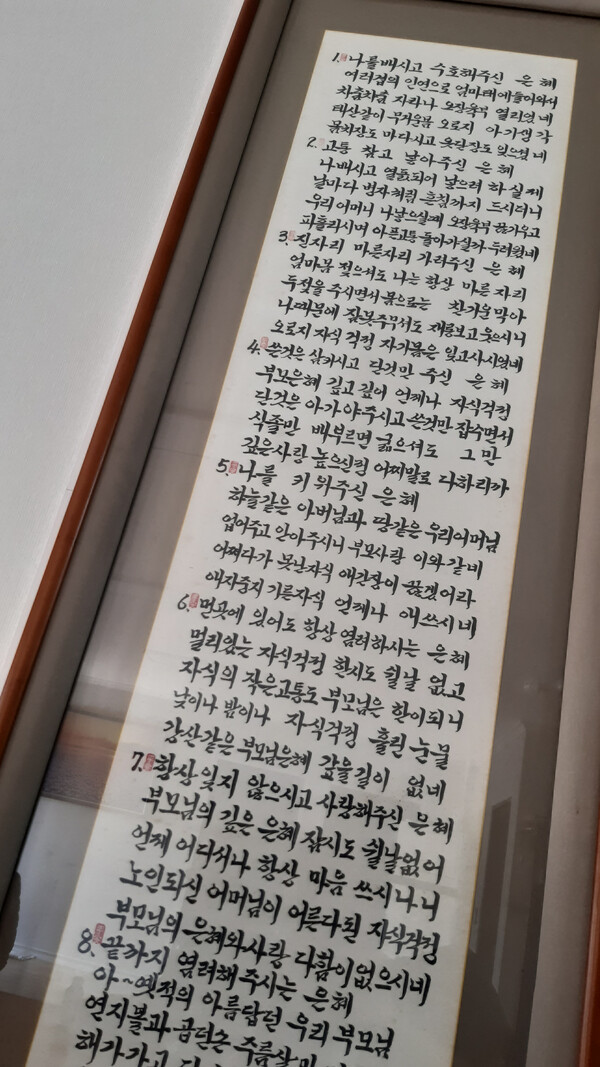 1. 나를 배시고 수호해주신 은혜
여러겁의 인연으로 엄마태에 들어와서
차츰차츰 자라나 오장육부 열리였네
태산같이 무거운몸 오로지 아기생각
몸차장도 마다시고 옷단장도 잊으셨네
2. 고통 참고 낳아주신 은혜
나 배시고 열 되어 낳으려 하실제
날마다 병자처럼 흔침까지 드시더니
우리 어머니 나낳으실때 오장육부 가우고
파흘리시며 아픈고통 돌아가실까 두려웠네
3. 진자리 마른자리 가려주신 은혜
엄마몸 젖으셔도 나는 항상 마른 자리
두젖을 주시면서 몸으로는 찬기운 막아
나때문에 잠못주무셔도 재롱보고 웃으시니
오로지 자식 걱정 자기몸은 잊고사시었네
4. 쓴것은 삼키시고 단것만 주신 은혜
부모은혜 깊고 깊어 언제나 자식걱정
단것은 아가야 주시고 쓴것만 잡수면서
식졸만 배부르면 굶으셔도 그만
깊은사랑 높으신컴 어찌말로 다하리까
5. 나를 키워주신 은혜
하늘같은 아버님과 땅같은 우리어머님
업어주고 안아주시니 부모사랑 이와같네
어쩌다가 못난자식 애간장이 끓겠어라
애지중지 기른자식 언제나 애쓰시네
6. 먼곳에 있어도 항상 염려하시는 은혜
멀리있는 자식걱정 한시도 쉴날 없고
자식의 작은고통도 부모님은 한이되니
낮이나 밤이나 자식걱정 흘린 눈물
강산같은 부모님은혜 갚을길이 없네
7. 항상 잊지 않으시고 사랑해주신 은혜
부모님의 깊은 은혜 잠시도 쉴날없어
언제 어디서나 항상 마음 쓰시나니
노인되신 어머님이 어른다된 자식걱정
부모님의 은혜와사랑 다함이없으시네
8. 끝까지 염려해 주시는 은혜
아~ 옛적의 아름답던 우리 부모님
연지볼과 곱던손 주름살
해가가고